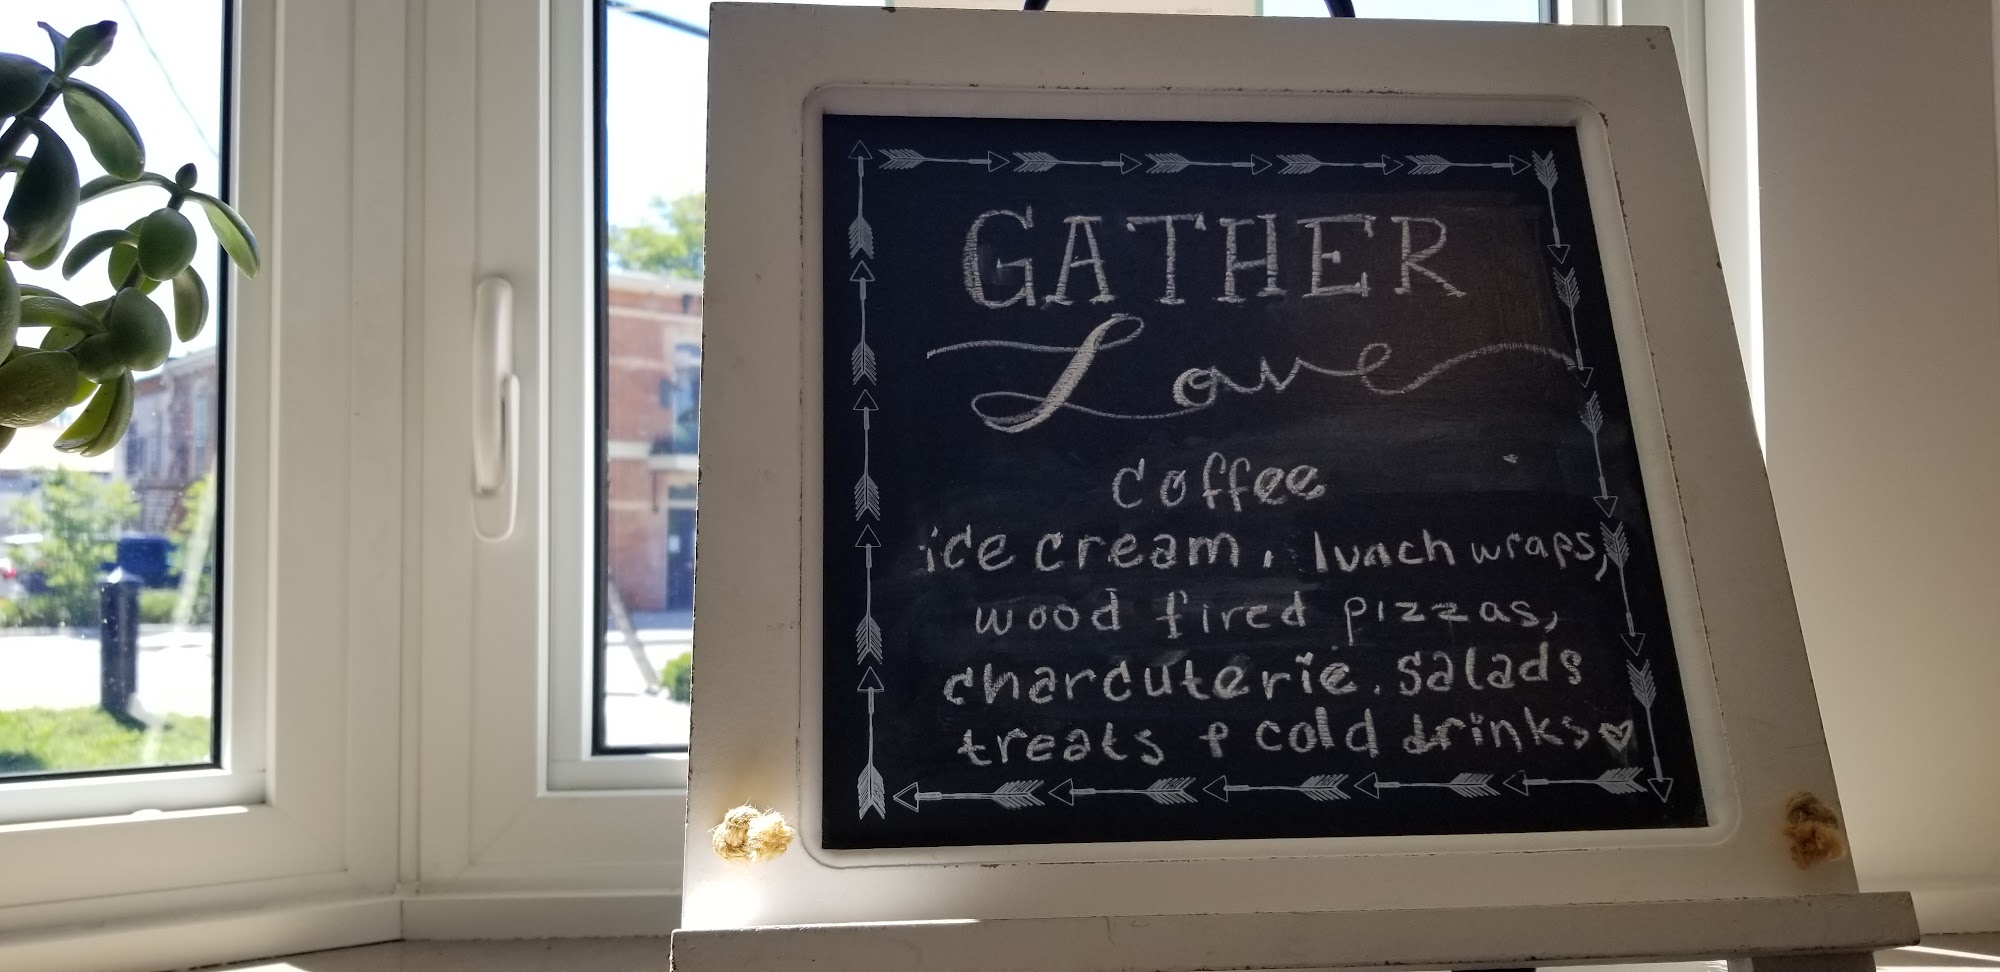 GATHER
Love
coffee
ice cream, lunch wraps,
wood fired pizzas,
charcuterie, salads
treats & cold drinks♡